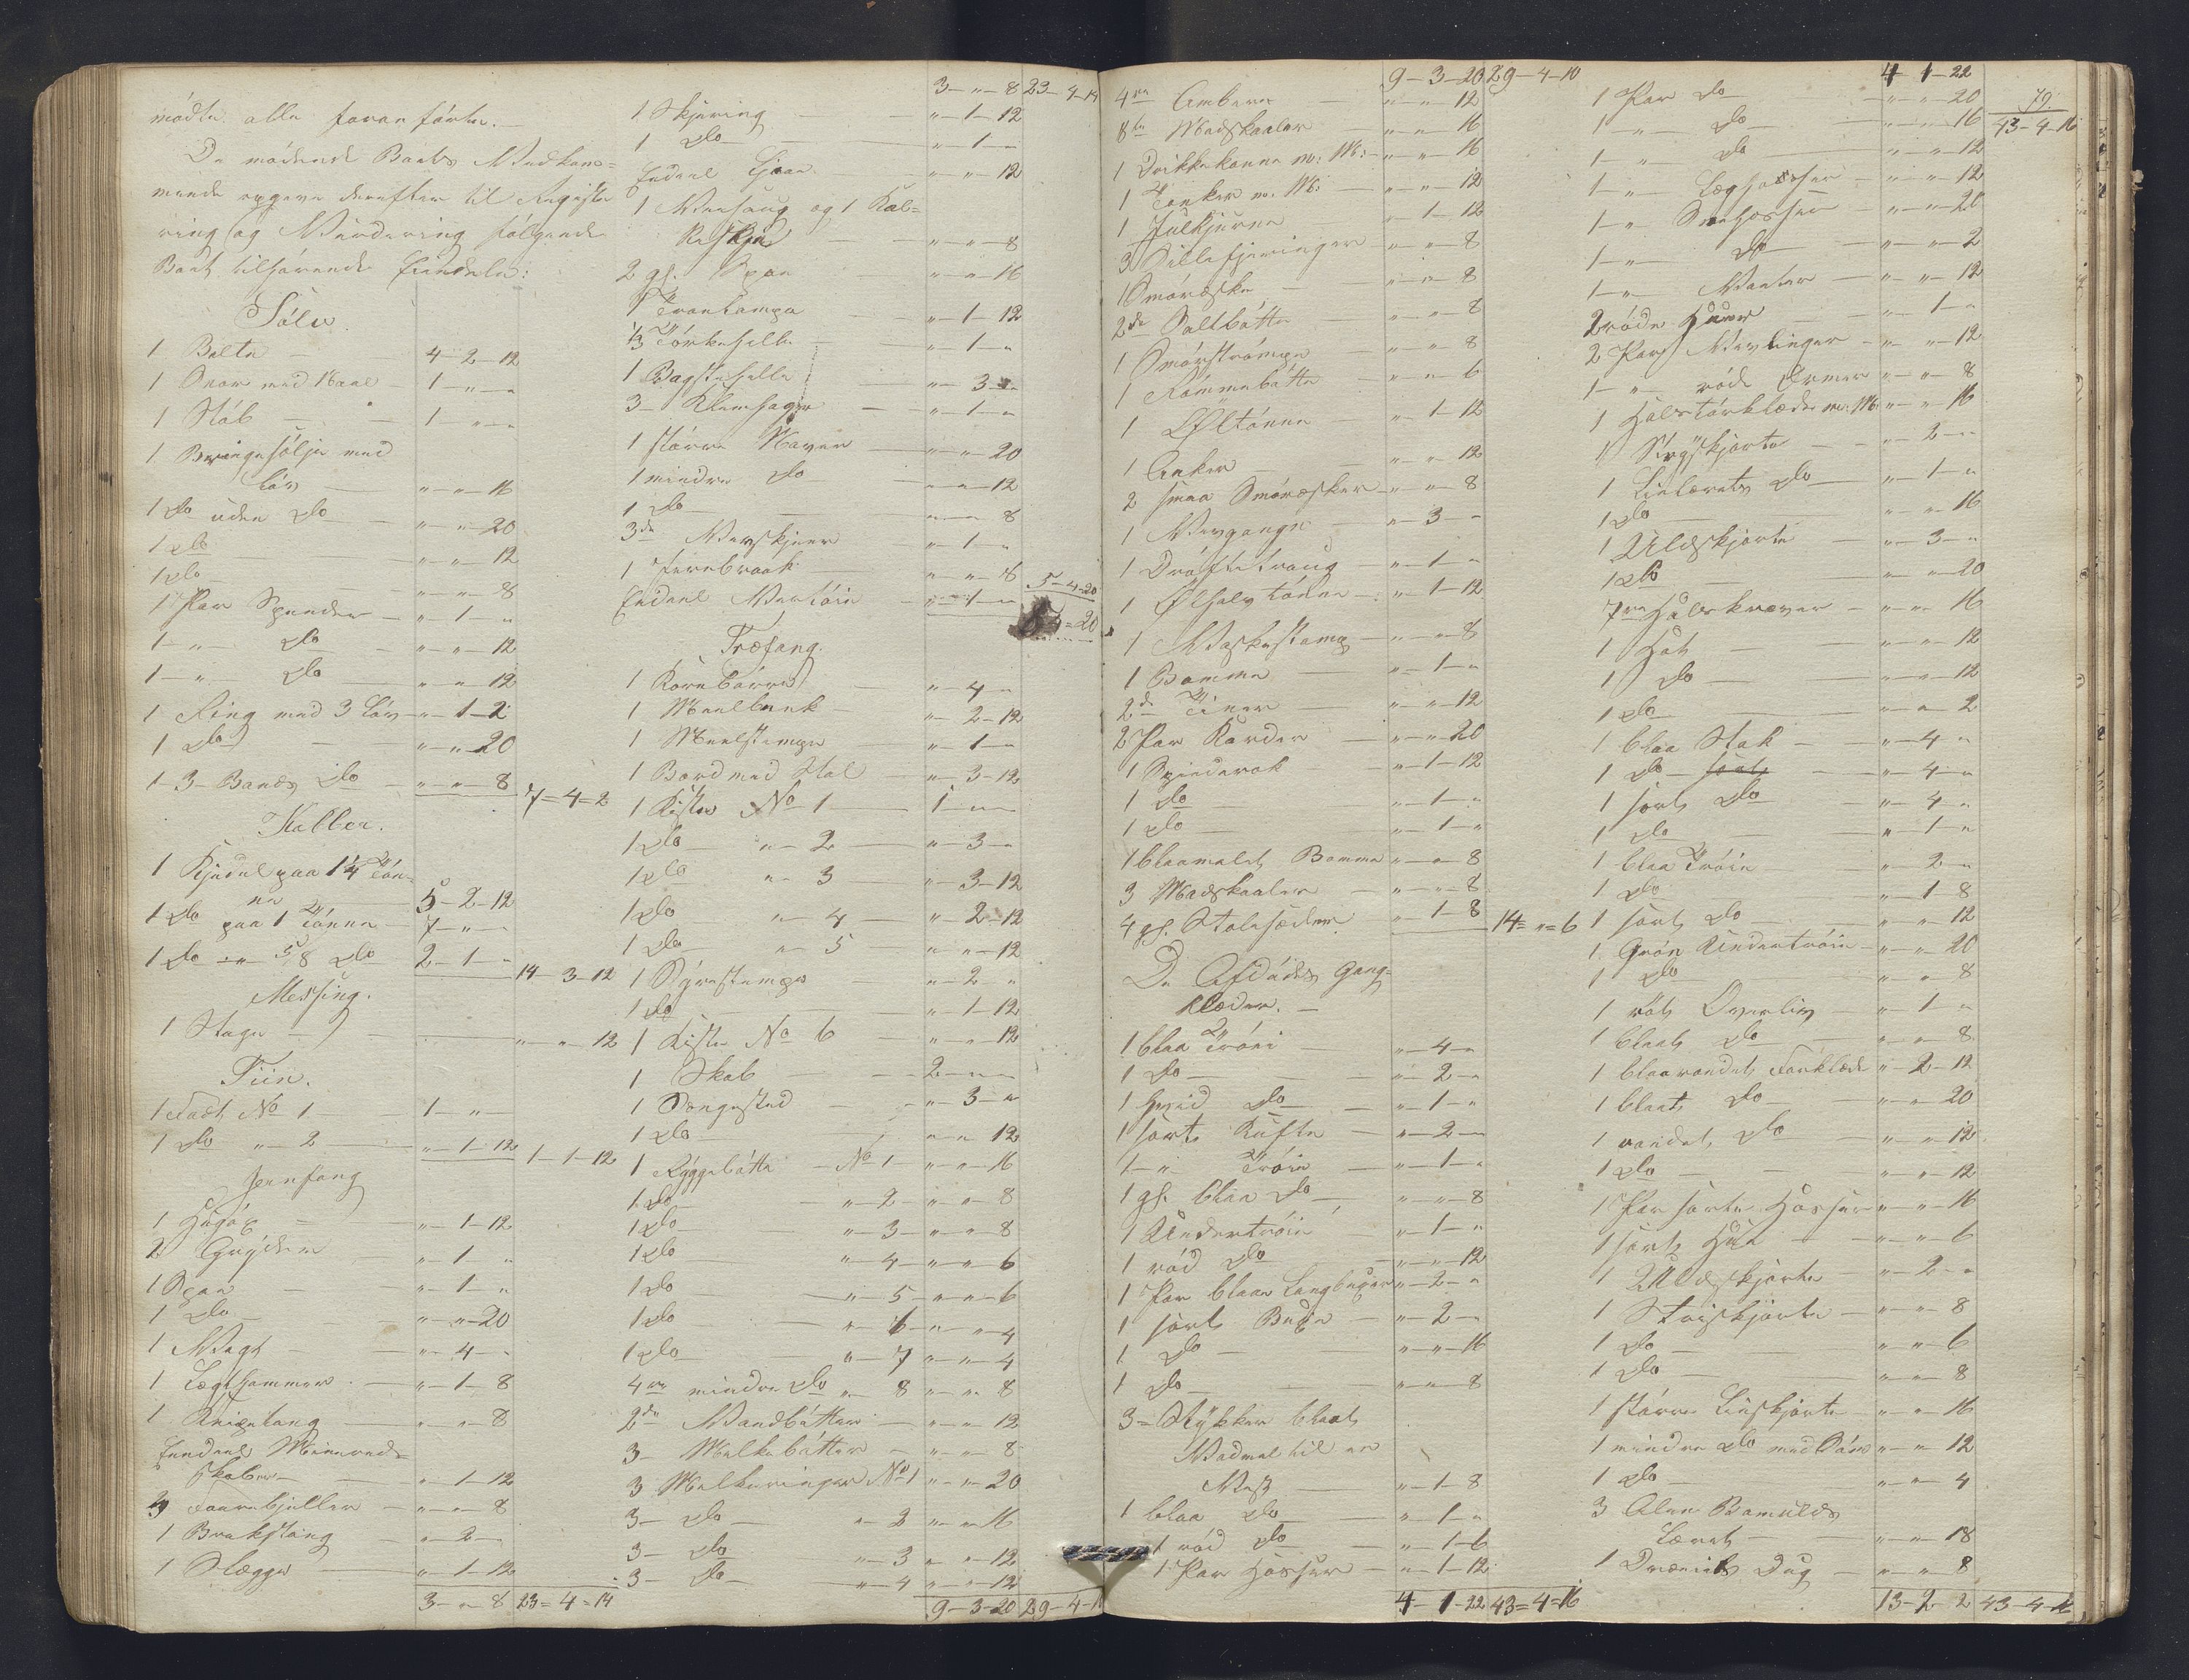 mødte alle foranførte. —
De mødende Boets Vedkom=
mende opgave derefter til Registe
ring og Vurdering følgende
Boet tilhørende Eiendele:
Sølv.
1 Belte — 4-2-12
1 Snor med Naal — 1-"-"
1 Støb — 1-"-"
1 Bringesølje med
Løv — "-"-16
1 Do uden Do — "-"-20
1 Do — "-"-12
1 Do — "-"-8
1 Par Spænder — "-1-"
1-"- Do — "-"-12
1-"- Do — "-"-12
1 Ring med 3 Løv — "-1-2
1 Do — "-"-20
1-3-Bands Do — "-"-8 7=4=2
Kobber.
1 Kjedel paa 1¼ Tøn-
ne 5-2-12
1 Do paa 1 Tønne — 7-"-"
1 Do -"- 5/8 Do 2-1-" 14-3-12
Messing.
1 Stage — "-"-12
Tiin.
1 Fadt No 1 — 1-"-
1 Do "-2 — "-1-12 1-1-12
Jernfang
1 — "-1-12
2 Gryder — "-1-"
1 Pan — "-1-"
1 Do — "-"-20
1 Vægt — "-4-"
1 Lægthammer — "-1-8
1 Knipetang — "-"-8
Endeel Minered=
skaber — "-1-12
3 Faarebjeller — "-"-8
1 Brækstang — "-2-
1 Slægge — "-1-12
3-"-8 23=4=14
3-"-8 23-4-14
1 Skjæring — "-1-12
1 Do — "-1-"
Endeel — "-"-12
1 og 1 Kal=
— "-"-8
2 gl. — "-"-16
1 Tranlampe — "-1-12
1/3 Tørkehelle — "-1-"
1 Bagstehelle — "-3-"
3- — "-1-"
1 større Naver — "-"-20
1 mindre Do — "-"-12
1 Do — "-"-8
3de — "-1-"
1 — "-"-8
Endeel Værktøi — "-1-" 5-4-20
Træfang.
1 Kornbørre — "-4-"
1 Meelbænk — "-2-12
1 Meelstampe — "-1-"
1 Bord med Stol — "-3-12
1 Kiste No 1 — 1-"-"
1 Do — "-2 — "-3-"
1 Do "-3 — "-3-12
1 Do "-4 — "-2-12
1 Do "-5 — "-"-12
1 Syrestampe — "-2-"
1 Do — "-1-12
1 Kiste No 6 — "-"-12
1 Skab — 2-"-"
1 Sengested — "-3-"
1 Do — "-"-12
1 Ryggebøtte — No 1 — "-"-16
1 Do — "-2 — "-"-8
1 Do — "-3 — "-"-8
1 Do — "-4 — "-"-6
1 Do — "-5 — "-"-6
1 Do — "-6 — "-"-4
1 Do — "-7 — "-"-4
4re mindre Do "-8 "-"-8
2de Vandbøtter — "-"-12
3- Melkebøtter — "-"-8
3 Melkeringer No 1 "-"-20
3- Do — "-2 "-"-16
3- Do — "-3 "-"-12
3- Do — "-4 "-"-12
9-3-20 29-4-1
9-3-20 29-4-10
4re Ambere — "-"-12
8te Madskaaler — "-"-16
1 Drikkekanne m: M: — "-"-16
1 m. M: — "-"-12
1 — "-1-12
3 Sillefjeringer — "-"-8
1 Smøræske — "-"-8
2de Saltbøtte — "-"-8
1 Smørstrompe — "-"-8
1 Rømmebøtte — "-"-6
1 Øltønne — "-1-12
1 Anker — "-"-12
2 smaa Smøræsker — "-"-8
1 Vævgange — "-3-"
1 Drøftetraug — "-1-"
1 Ølhalvtønne — "-1-12
1 Vaskestamp — "-"-8
1 Bomme — "-1-"
2de Tiner — "-"-12
2 Par Karder — "-"-20
1 Spinderok — "-1-12
1 Do — "-1-"
1 Do — "-1-"
1 blaamalet Bomme "-"-8
3 Madskaaler — "-"-8
4 gl. Stolesæder — "-1-8 14="=6
De Afdødes Gang=
klæder. —
1 blaa Trøie — "-4-"
1 Do — "-2-"
1 hvid Do — "-1-"
1 sort Kufte — "-2-"
1-"- Trøie — "-1-"
1 gl. blaa Do — "-"-8
1 Undertrøie — "-1-"
1 rød Do — "-"-12
1 Par blaae Langbuxer "-2-"
1 sort Buxe — "-2-"
1 Do — "-"-16
1 Do — "-"-8
3= Stykker blaat
Vadmel til en
Vest — "-1-8
1 blaa Do — "-1-"
1 rød Do — "-1-6
1 Par Hosser — "-1-12
4-1-22 43=4=16
79.
4-1-22
43-4-16
1 Par Do — "-"-20
1-"- Do — "-"-16
1-"- Do — "-"-12
1-"- Læghosser — "-"-12
1-"- Snehosser — "-"-20
1-"- Do — "-"-2
1-"- Vanter — "-"-12
2 røde Huver — "-1-"
2 Par Vævlinger — "-"-12
1-"- røde Ærmer — "-"-8
1 Halstørklæde m. M. "-"-16
1 Strigskjorte — "-2-"
1 Linlærets Do — "-1-"
1 Do — "-"-16
1 Uldskjorte — "-3-"
1 Do — "-"-20
7 Halskraver — "-"-16
1 Hat — "-"-12
1 Do — "-"-12
1 Do — "-"-2
1 blaa Stak — "-4-"
1 Do — sort — "-4-"
1 sort Do — "-4-"
1 Do — "-1-"
1 blaa Trøie — "-2-"
1 Do — "-1-8
1 sort Do — "-"-12
1 Grøn Undertrøie — "-"-20
1 Do — "-"-8
1 rødt Overliv — "-1-"
1 blaat Do — "-"-8
1 blaarandet Forklæde "-2-12
1 blaat Do — "-"-20
1 randet Do — "-"-12
1 Do — "-"-12
1 Par sorte Hosser — "-"-16
1 sort Hue — "-"-6
1 Uldskjorte — "-2-"
1 Striskjorte — "-"-8
1 Do — "-"-6
1 Do — "-"-8
1 større Linskjorte — "-"-16
1 mindre Do med "-"-12
1 Do — "-"-4
3 Alen Bomulds
Lærret — "-"-18
1 Dug — "-"-8
13-2-2 43-4-16